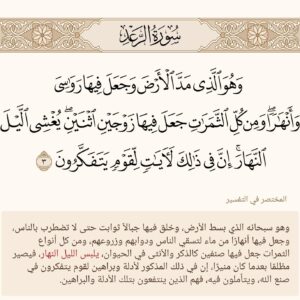 سُورَةُ الرَّعْدِ
وَهُوَ ٱلَّذِى مَدَّ ٱلْأَرْضَ وَجَعَلَ فِيهَا رَوَٰسِىَ
وَأَنْهَٰرًا ۖ وَمِن كُلِّ ٱلثَّمَرَٰتِ جَعَلَ فِيهَا زَوْجَيْنِ ٱثْنَيْنِ ۖ يُغْشِى ٱلَّيْلَ
ٱلنَّهَارَ ۚ إِنَّ فِى ذَٰلِكَ لَءَايَٰتٍ لِّقَوْمٍ يَتَفَكَّرُونَ ٣
المختصر في التفسير
وهو سبحانه الذي بسط الأرض، وخلق فيها جبالاً ثوابت حتى لا تضطرب بالناس،
وجعل فيها أنهارًا من ماء لتسقي الناس ودوابهم وزروعهم، ومن كل أنواع
الثمرات جعل فيها صنفين كالذكر والأنثى في الحيوان، يلبس الليل النهار، فيصير
مظلمًا بعدما كان منيرًا، إن في ذلك المذكور لأدلة وبراهين لقوم يتفكرون في
صنع الله، ويتأملون فيه، فهم الذين ينتفعون بتلك الأدلة والبراهين.